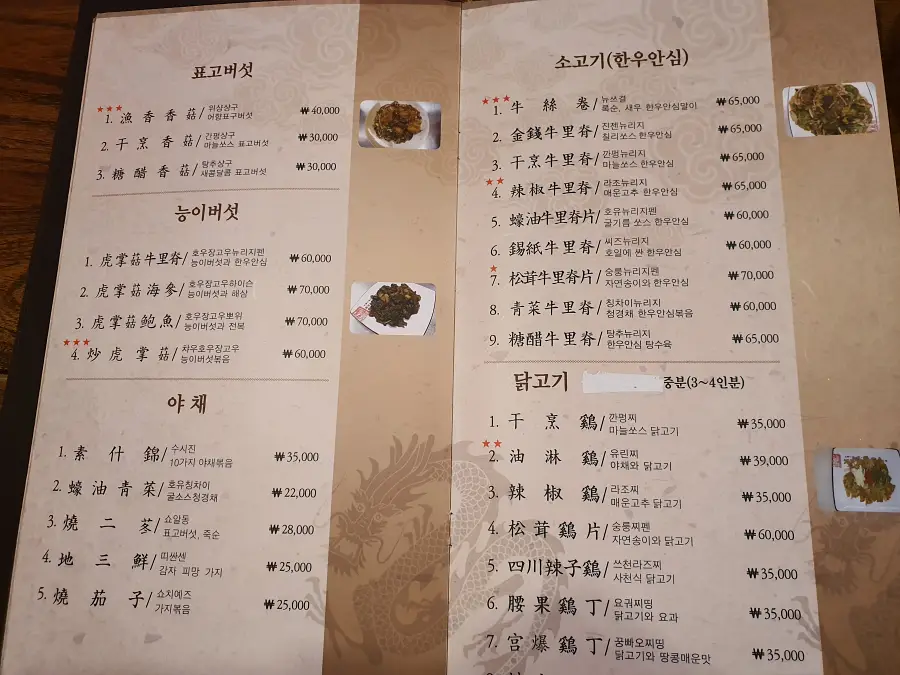 표고버섯
★★★
1. 漁香香菇/ 위샹샹구 ₩40,000
어향표구버섯
2. 干烹香菇/ 간펑샹구 ₩30,000
마늘쏘스 표고버섯
3. 糖醋香菇/ 탕추샹구 ₩30,000
새콤달콤 표고버섯
능이버섯
1. 虎掌菇牛里脊/ 호우장고우뉴리지펜 ₩60,000
능이버섯과 한우안심
2. 虎掌菇海參/ 호우장고우하이슨 ₩70,000
능이버섯과 해삼
3. 虎掌菇鮑魚/ 호우장고우뽀위 ₩70,000
능이버섯과 전복
★★★
4. 炒虎掌菇/ 챠우호우장고우 ₩60,000
능이버섯볶음
야채
1. 素什錦/ 수시진 ₩35,000
10가지 야채볶음
2. 蠔油青菜/ 호유칭차이 ₩22,000
굴소스청경채
3. 燒二冬/ 쇼얄동 ₩28,000
표고버섯, 죽순
4. 地三鮮/ 띠싼센 ₩25,000
감자 피망 가지
5. 燒茄子/ 쇼지예즈 ₩25,000
가지볶음
소고기(한우안심)
★★★
1. 牛絲卷/ 뉴쓰결 ₩65,000
룩순, 새우 한우안심말이
2. 金錢牛里脊/ 진젠뉴리지 ₩65,000
칠리쏘스 한우안심
3. 干烹牛里脊/ 깐펑뉴리지 ₩65,000
마늘쏘스 한우안심
★★
4. 辣椒牛里脊/ 라조뉴리지 ₩65,000
매운고추 한우안심
5. 蠔油牛里脊片/ 호유뉴리지펜 ₩60,000
굴기름 쏘스 한우안심
6. 錫紙牛里脊/ 씨즈뉴리지 ₩60,000
호일에 싼 한우안심
★
7. 松茸牛里脊片/ 숭룽뉴리지펜 ₩70,000
자연송이와 한우안심
8. 青菜牛里脊/ 칭차이뉴리지 ₩60,000
청경채 한우안심볶음
9. 糖醋牛里脊/ 탕추뉴리지 ₩65,000
한우안심 탕수육
닭고기 중분(3~4인분)
1. 干烹鷄/ 깐펑찌 ₩35,000
마늘쏘스 닭고기
★★
2. 油淋鷄/ 유린찌 ₩39,000
야채와 닭고기
3. 辣椒鷄/ 라조찌 ₩35,000
매운고추 닭고기
4. 松茸鷄片/ 숭룽찌펜 ₩60,000
자연송이와 닭고기
5. 四川辣子鷄/ 쓰천라즈찌 ₩35,000
사천식 닭고기
6. 腰果鷄丁/ 요궈찌띵 ₩35,000
닭고기와 요과
7. 宮爆鷄丁/ 꿍빠오찌띵 ₩35,000
닭고기와 땅콩매운맛